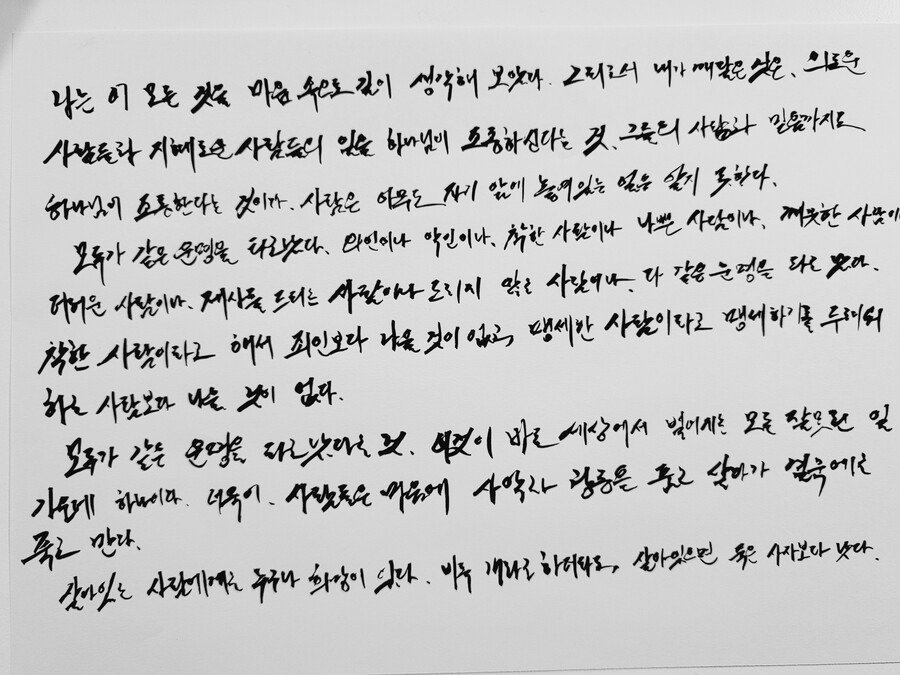 나는 이 모든 것을 마음 속으로 깊이 생각해 보았다. 그리로서 내가 깨달은 것은, 의로운
사람들과 지혜로운 사람들의 일을 하나님이 조종하신다는 것, 그들의 사랑과 믿음까지도
하나님이 조종한다는 것이다. 사람은 아무도 자기 앞에 놓여있는 일을 알지 못한다.
모두가 같은 운명을 타고났다. 의인이나 악인이나, 착한 사람이나 나쁜 사람이나, 깨끗한 사람이나
더러운 사람이나, 제사를 드리는 사람이나 드리지 않는 사람이나, 다 같은 운명을 타고 났다.
착한 사람이라고 해서 죄인보다 나을 것이 없고, 맹세한 사람이라고 맹세하기를 두려워
하는 사람보다 나을 것이 없다.
모두가 같은 운명을 타고났다는 것, 이것이 바로 세상에서 벌어지는 모든 잘못된 일
가운데 하나이다. 더욱이, 사람들은 마음에 사악과 광증을 품고 살아가 결국에는
죽고 만다.
살아있는 사람에게는 누구나 희망이 있다. 비록 개라고 하더라도, 살아있으면 죽은 사자보다 낫다.